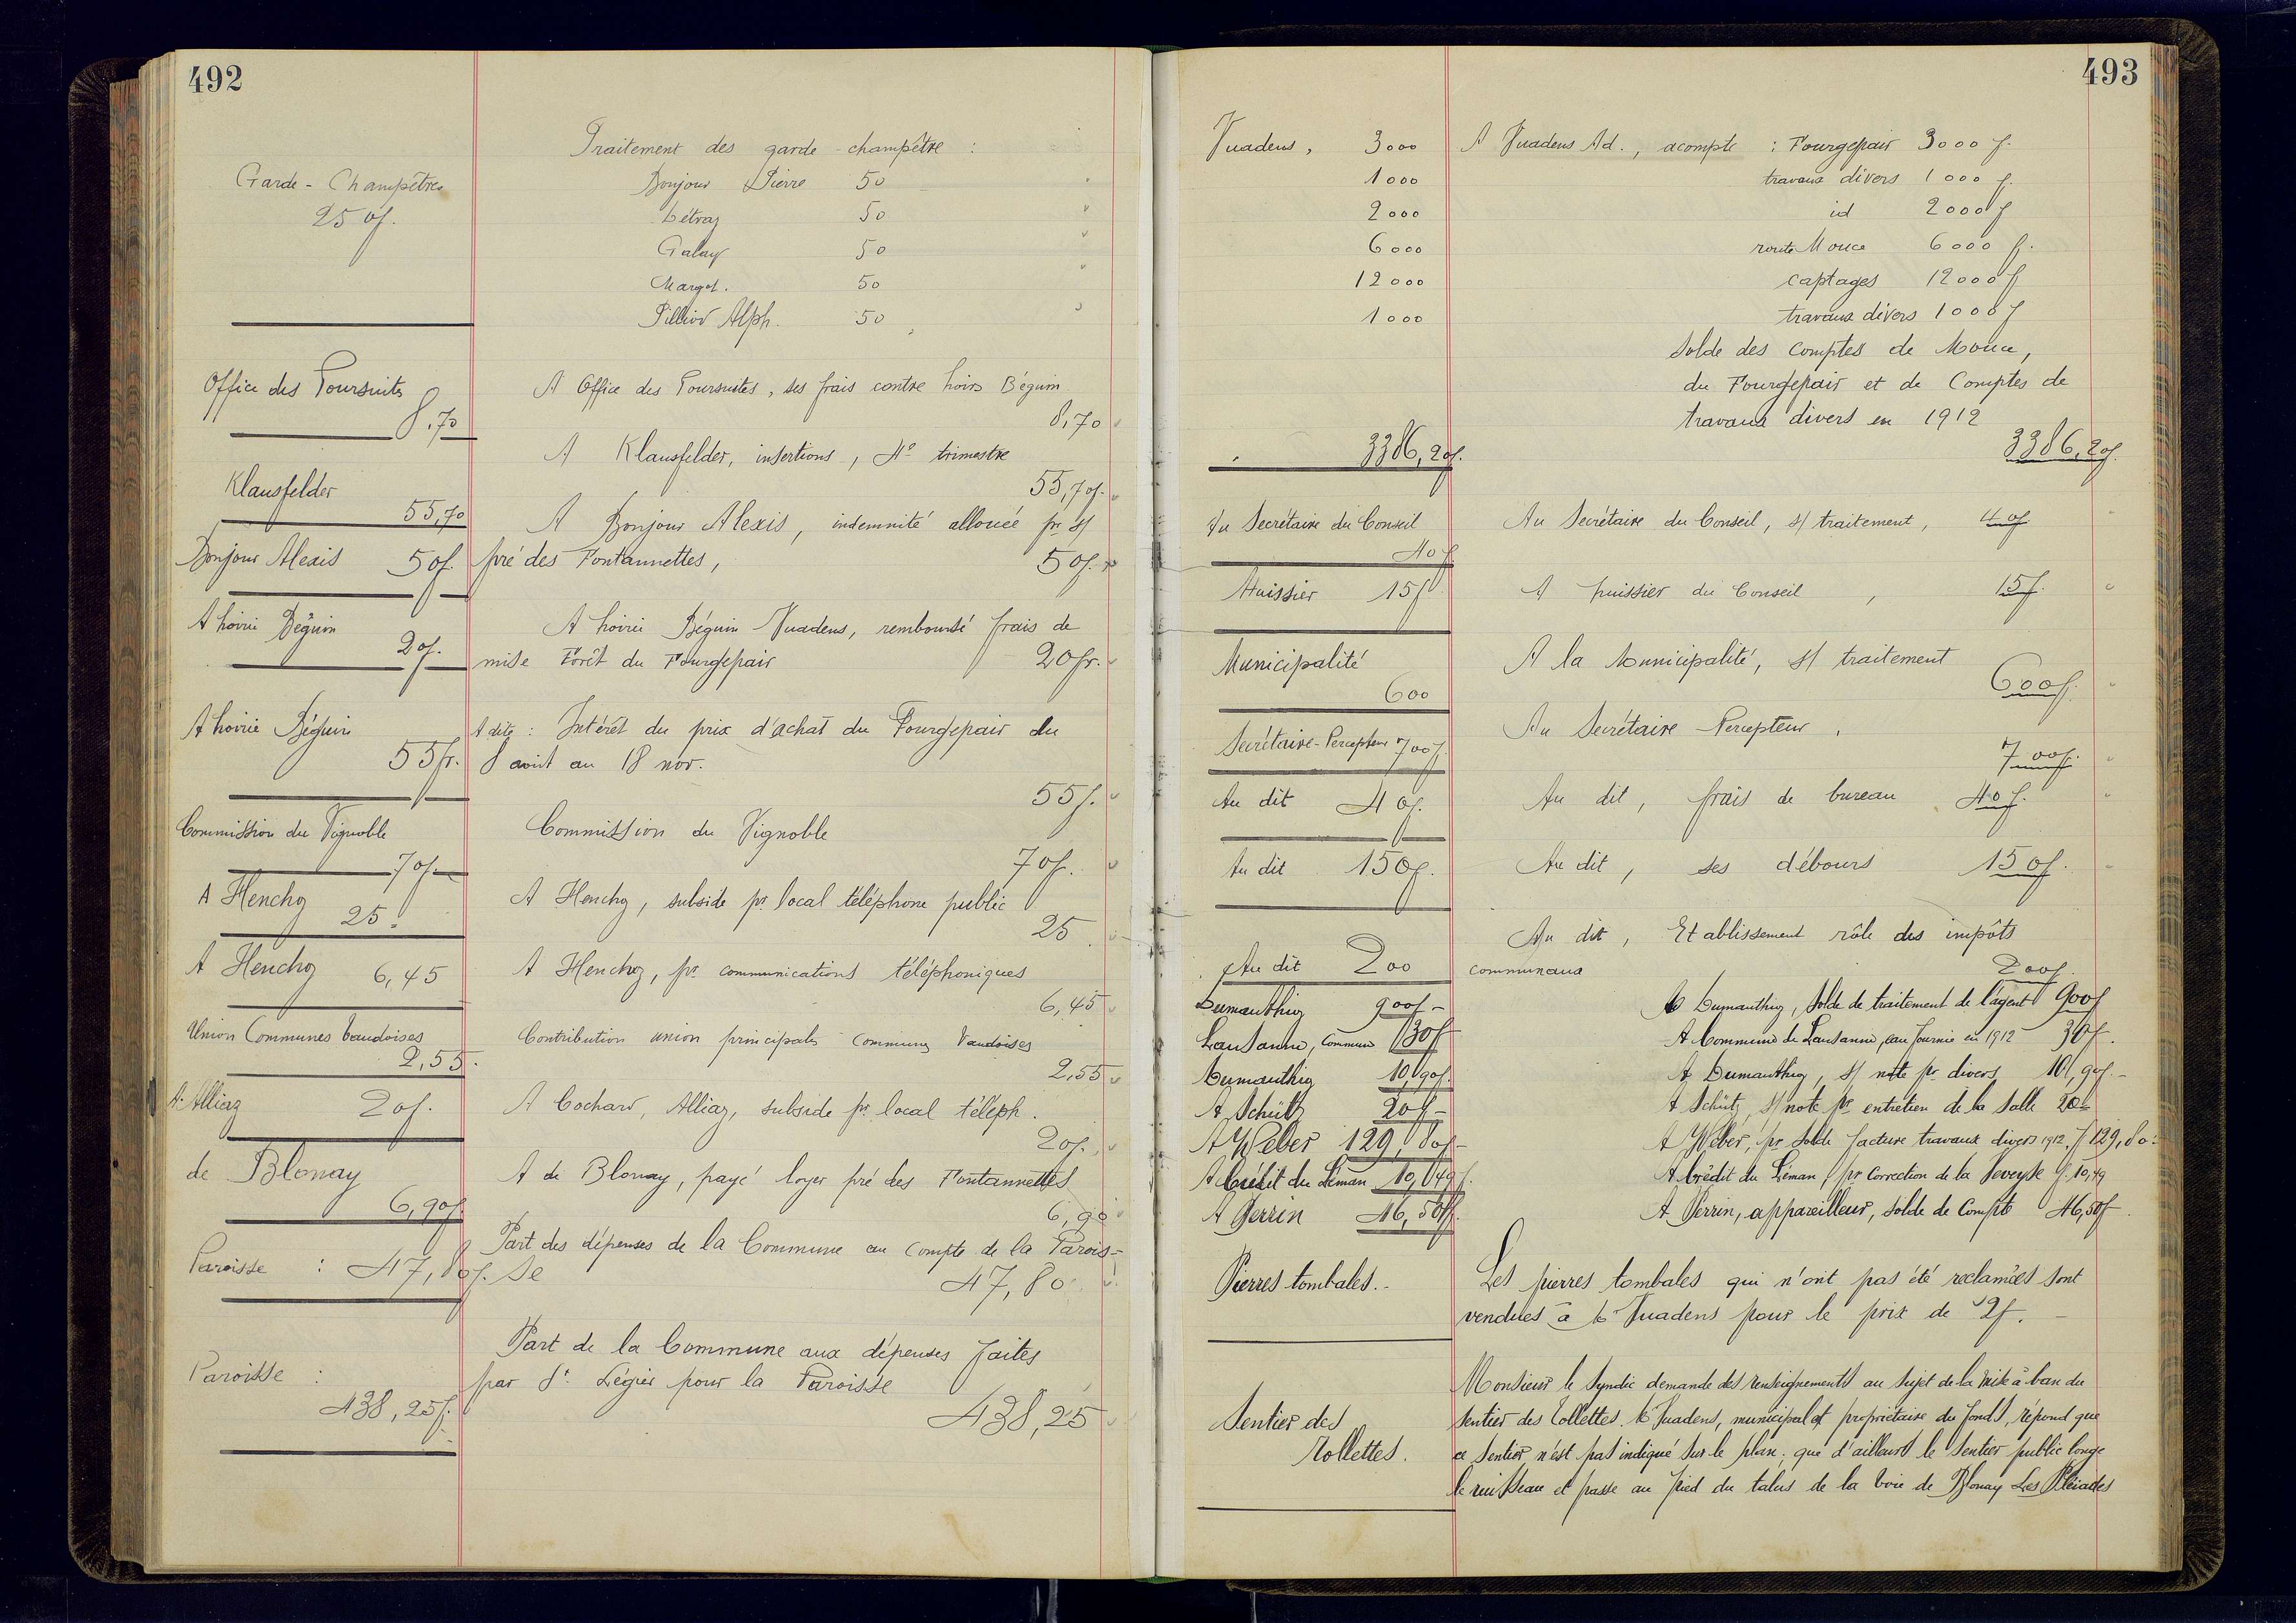 492
Traitement des garde-champêtre :
Garde-Champêtres
250f.
Bonjour Pierre 50
Détraz 50
Galay 50
Margot. 50
Pilliod Alph. 50
Office des Poursuites
8,70
A Office des Poursuites, ses frais contre hoirs Béguin
8,70
Klausfelder
55,70
A Klausfelder, insertions, 4e trimestre
55,70f.
Bonjour Alexis 50f.
A Bonjour Alexis, indemnité allouée pr s/
pré des Fontannettes, 50f.
A hoirie Béguin
20f.
A hoirie Béguin Vuadens, remboursé frais de
mise Forêt du Fourgepair 20fr.
A hoirie Béguin
55fr.
A dite : Intérêt du prix d'achat du Fourgepair du
8 août au 18 nov.
55f.
Commission du Vignoble
70f.
Commission du Vignoble
70f.
A Henchoz
25.
A Henchoz, subside pr local téléphone public
25
A Henchoz 6,45
A Henchoz, pr communications téléphoniques
6,45
Union Communes vaudoises
2,55.
Contribution union principale communes Vaudoises
2,55
A Alliaz 20f.
A Cochard, Alliaz, subside pr local téléph.
20f.
de Blonay
6,90f
A de Blonay, payé loyer pré des Fontannettes
6,90
Paroisse : 47,80f.
Part des dépenses de la Commune au compte de la Parois-
se 47,80
Paroisse :
438,25f.
Part de la Commune aux dépenses faites
par St Légier pour la Paroisse
438,25
493
Vuadens, 3000
1000
2000
6000
12000
1000
3386,20f.
A Vuadens Ad., acompte : Fourgepair 3000 f.
travaux divers 1000 f.
id 2000 f
route Mouce 6000 f.
captages 12000 f
travaux divers 1000 f
Solde des comptes de Mouce,
du Fourgepair et de Comptes de
travaux divers en 1912
3386,20f.
Au Secrétaire du Conseil
40f
Au Secrétaire du Conseil, s/ traitement, 40f
Huissier 15f
A huissier du Conseil, 15f.
Municipalité
600
A la Municipalité, s/ traitement
600f.
Secrétaire-Percepteur 700f.
Au Secrétaire-Percepteur,
700f.
Au dit 40f.
Au dit, frais de bureau 40f.
Au dit 150f.
Au dit, ses débours 150f.
Au dit 200
Au dit, Etablissement rôle des impôts
communaux 200f.
Dumauthioz 900f-
A Dumauthioz, solde de traitement de l'agent 900f
Lausanne, Commune 30f
A Commune de Lausanne, eau fournie en 1912 30f.
Dumauthioz 10,90f.
A Dumauthioz, s/ note pr divers 10,90f.-
A Schütz 20f-
A Schütz, s/ note pr entretien de la Salle 20f
A Weber 129,80f-
A Weber, pr solde facture travaux divers 1912, f 129,80.
A Crédit du Léman 10,49f.
A Crédit du Léman pr Correction de la Veveyse f. 10,49
A Perrin 46,50f.
A Perrin, appareilleur, solde de Compte 46,50f.
Pierres tombales.-
Les pierres tombales qui n'ont pas été reclamées sont
vendues à Mr Vuadens pour le prix de 2f.-
Sentier des
Tollettes.
Monsieur le Syndic demande des renseignements au sujet de la mise à ban du
sentier des Tollettes. Mr Vuadens, municipal et propriétaire du fonds, répond que
ce sentier n'est pas indiqué sur le plan; que d'ailleurs le sentier public longe
le ruisseau et passe au pied du talus de la voie de Blonay Les Pléiades